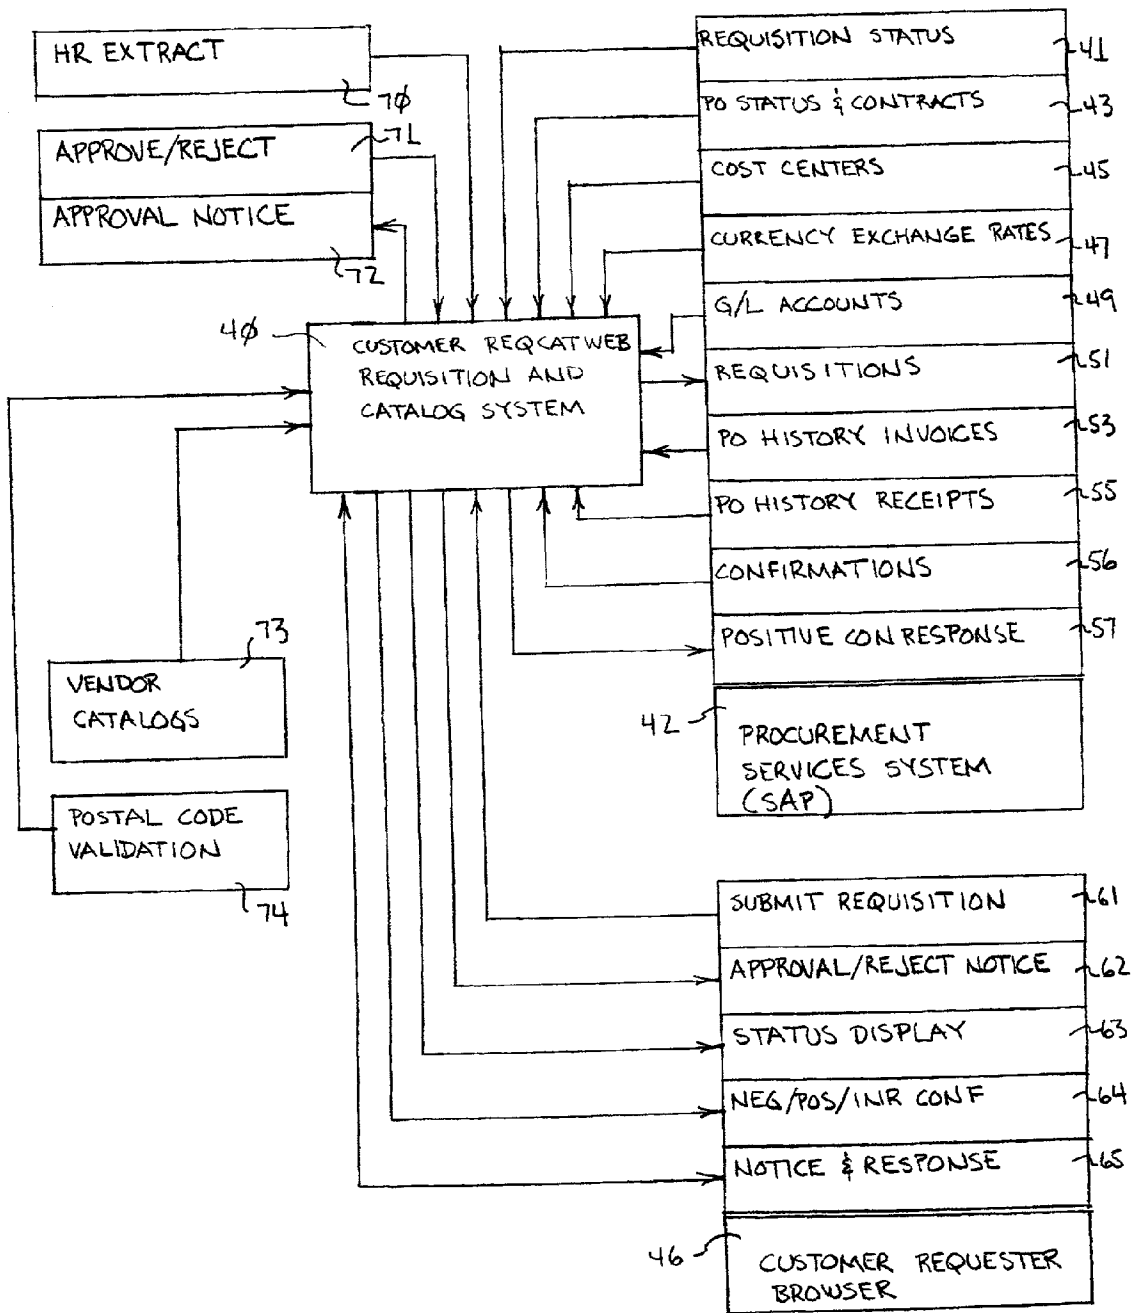 HR EXTRACT
7Ø
71
APPROVE/REJECT
APPROVAL NOTICE
72
4Ø
CUSTOMER REQCATWEB
REQUISITION AND
CATALOG SYSTEM
73
VENDOR
CATALOGS
POSTAL CODE
VALIDATION
74
REQUISITION STATUS
41
PO STATUS & CONTRACTS
43
COST CENTERS
45
CURRENCY EXCHANGE RATES
47
G/L ACCOUNTS
49
REQUISITIONS
51
PO HISTORY INVOICES
53
PO HISTORY RECEIPTS
55
CONFIRMATIONS
56
POSITIVE CON RESPONSE
57
42
PROCUREMENT
SERVICES SYSTEM
(SAP)
SUBMIT REQUISITION
61
APPROVAL/REJECT NOTICE
62
STATUS DISPLAY
63
NEG/POS/INR CONF
64
NOTICE & RESPONSE
65
46
CUSTOMER REQUESTER
BROWSER